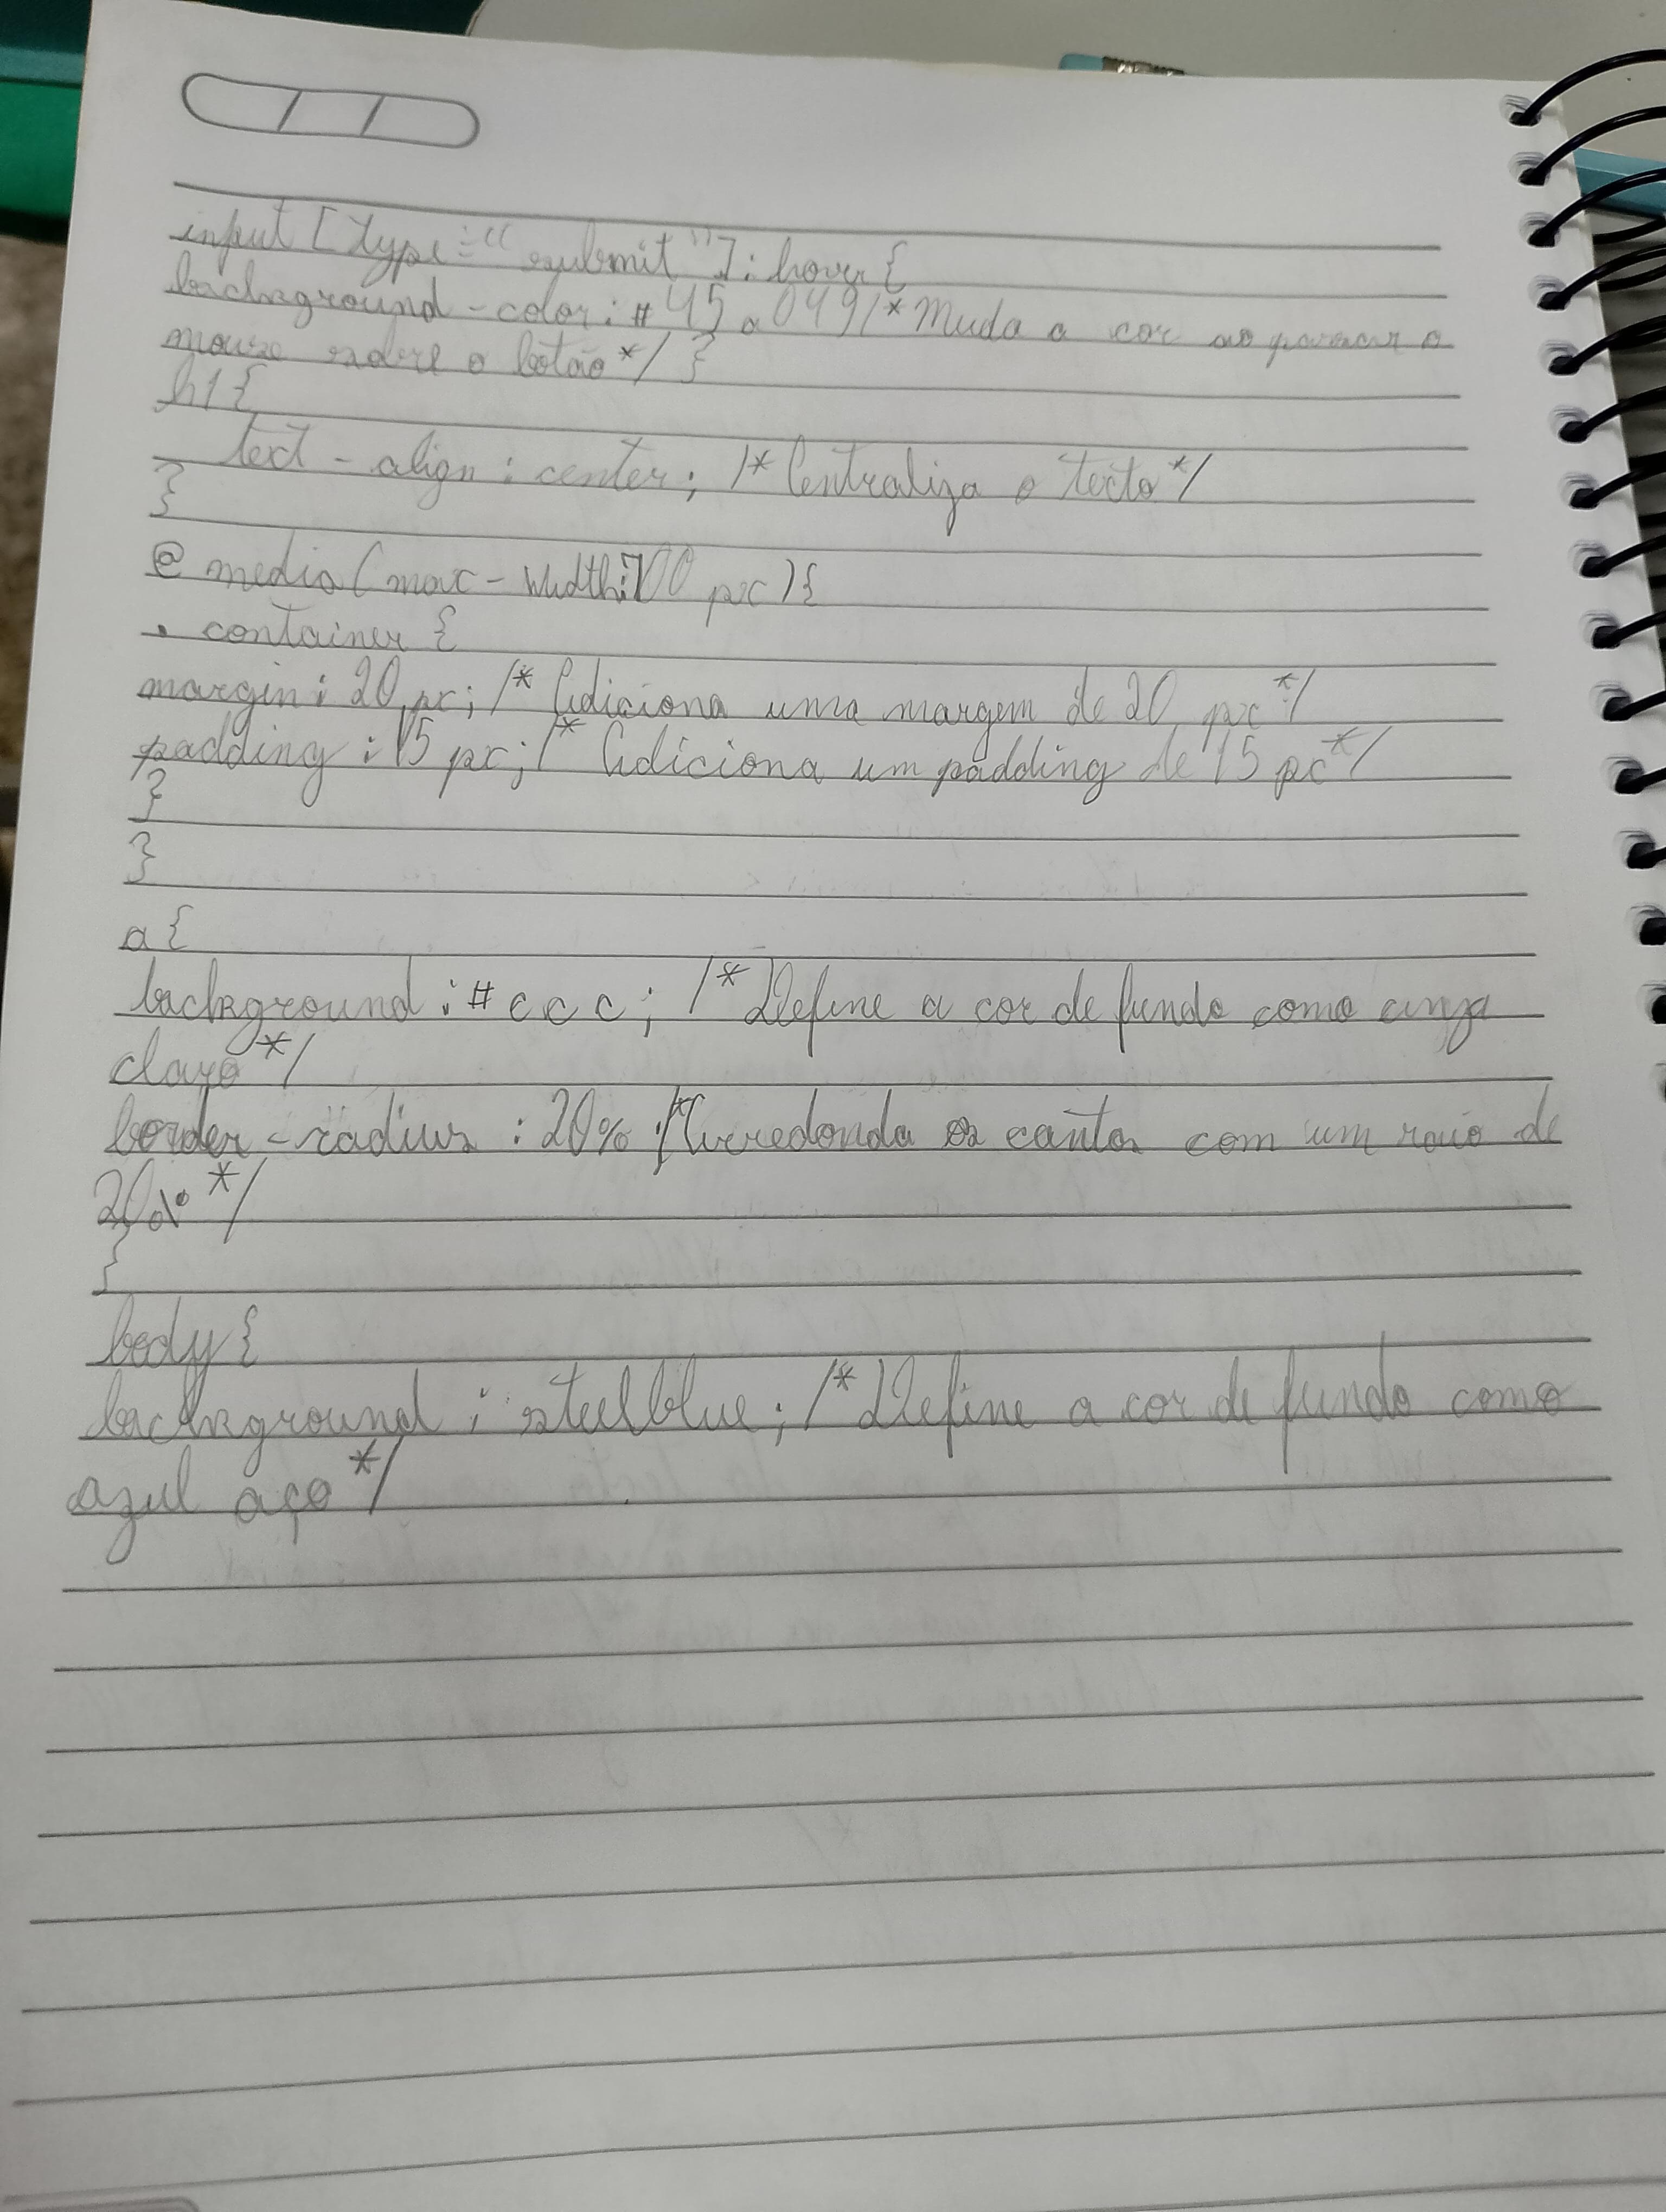 input [type="submit"]: hover{
background-color: #45a049/* Muda a cor ao passar o
mouse sobre o botão*/ }
h1{
text-align: center; /* Centraliza o texto*/
}
@media(max-width:700px){
.container {
margin: 20px; /* Adiciona uma margem de 20px*/
padding: 15px; /* Adiciona um padding de 15px*/
}
}
a{
background: #ccc; /* Define a cor de fundo como cinza
claro*/
border-radius: 20% /* Arredonda os cantos com um raio de
20%*/
}
body{
background: steelblue; /* Define a cor de fundo como
azul aço*/